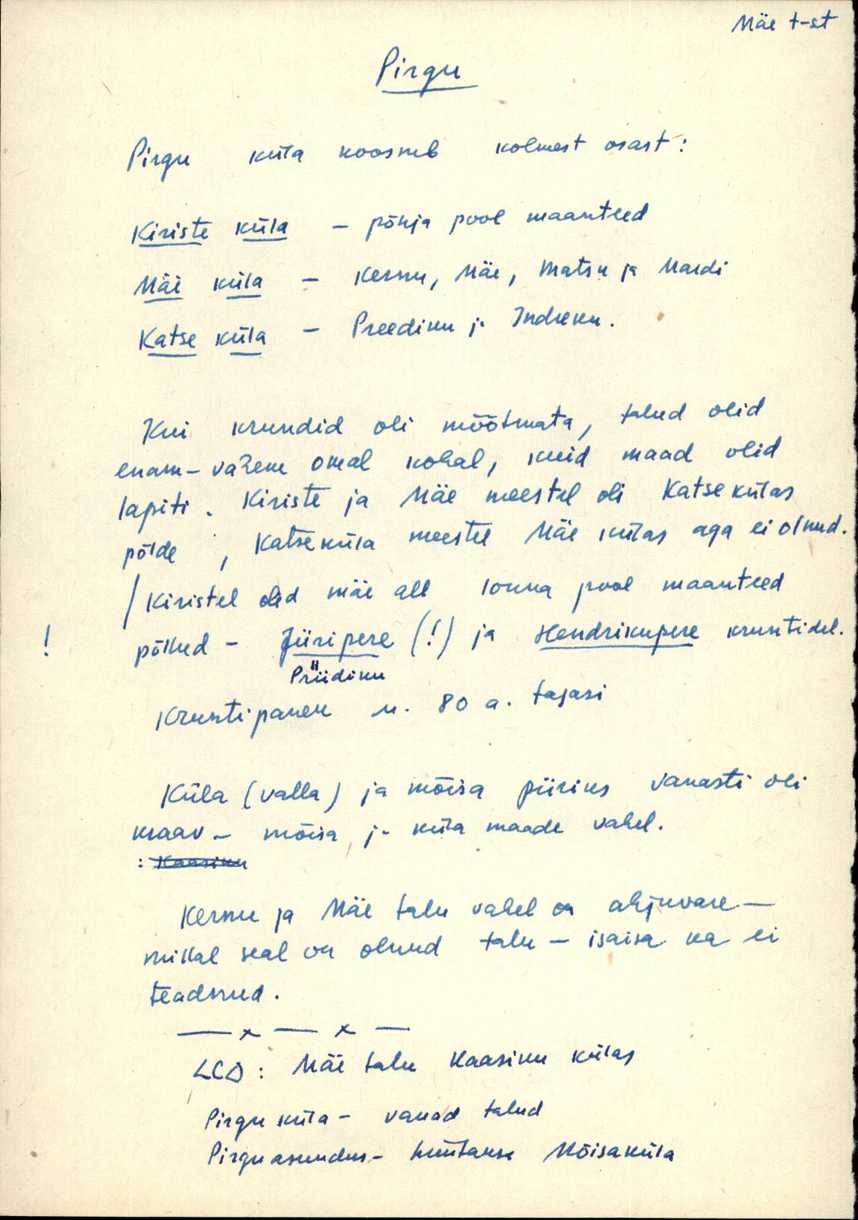 Mäe t-st
Pirgu
Pirgu küla koosneb kolmest osast:
Kiriste küla – põhja pool maanteed
Mäe küla – Kernu, Mäe, Matsu ja Mardi
Katse küla – Preediku ja Indreku.
Kui krundid oli mõõtmata, talud olid
enam-vähem omal kohal, kuid maad olid
lapiti. Kiriste ja Mäe meestel oli Katse külas
põlde, Katseküla meestel Mäe külas aga ei olnud.
/ Kiristel olid mäe all lõuna pool maanteed
! põllud – Jüripere (!) ja Hendrikupere kruntidel.
Priidiku
Kruntipanek u. 80 a. tagasi
Küla (valla) ja mõisa piiriks vanasti oli
kraav – mõisa ja küla maade vahel.
: Kaasiku
Kernu ja Mäe talu vahel on ahjuvare –
millal seal on olnud talu – isaisa ka ei
teadnud.
— x — x —
: Mäe talu Kaasiku külas
Pirgu küla – vanad talud
Pirgu asundus – hüütakse Mõisaküla